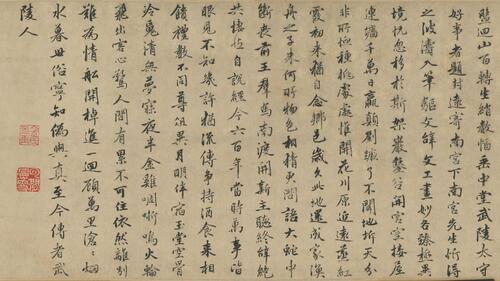 盤迴山百轉生綃數幅垂中堂武陵太守
好事者題封遠寄南宮下南宮先生忻得
之波濤入筆驅文辭文工畫妙各臻極異
境恍忽移於斯架巖鑿谷開宮室接屋
連墻千萬日嬴顛劉蹶了不聞地坼天分
非所恤種桃處處惟開花川原近遠蒸紅
霞初來猶自念鄉邑歲久此地還成家漁
舟之子來何所物色相猜更問語大蛇中
斷喪前王群馬南渡開新主聽終辭絕
共悽然自說經今六百年當時萬事皆
眼見不知幾許猶流傳爭持酒食來相
饋禮數不同尊俎異月明伴宿玉堂空骨
冷魂清無夢寐夜半金雞啁哳鳴火輪
飛出客心驚人間有累不可住依然離別
難為情船開棹進一迴顧萬里滄滄烟
水暮世俗寧知偽與真至今傳者武
陵人